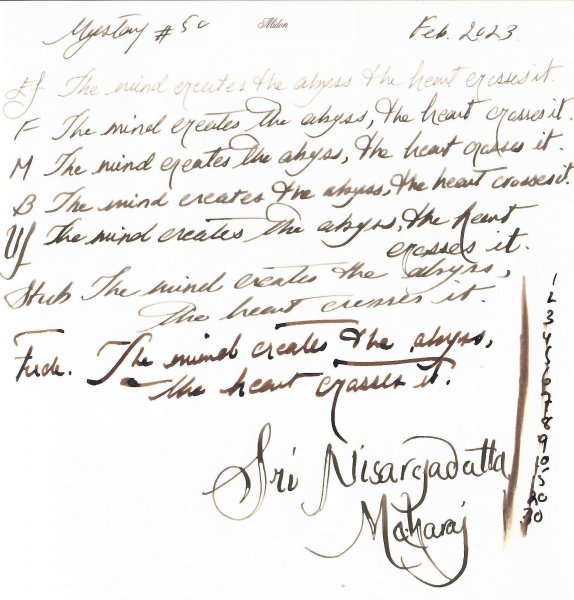 Mystery #50
Midori
Feb. 2023
Ef The mind creates the abyss & the heart crosses it.
F The mind creates the abyss, the heart crosses it.
M The mind creates the abyss, the heart crosses it.
B The mind creates the abyss, the heart crosses it.
Uf The mind creates the abyss, the heart
crosses it.
Stub The mind creates the abyss,
the heart crosses it.
Fude. The mind creates the abyss,
the heart crosses it.
1
2
3
4
5
6
7
8
9
10
15
20
30
Sri Nisargadatta
Maharaj